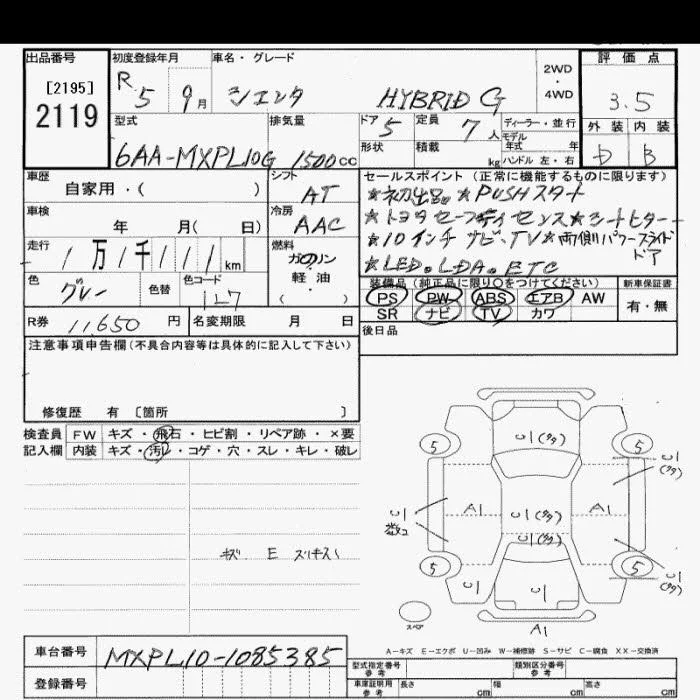 出品番号
[2195]
2119
初度登録年月
R 5 9月
車名・グレード
シエンタ HYBRID G
2WD
・
4WD
評価点
3.5
外装 内装
D B
型式
6AA-MXPL10G
排気量
1500cc
ドア 5
形状
定員 7人
積載 kg
ディーラー・並行
モデル
年式 年
ハンドル 左・右
車歴
自家用・( )
シフト
AT
車検
年 月( 日)
冷房
AAC
走行
1万1千111km
燃料
ガソリン
軽・油
( )
色
グレー
色替
色コード
1L7
R券 11650円
名変期限 月 日
セールスポイント (正常に機能するものに限ります)
★初出品。★PUSHスタート
★トヨタセーフティセンス★シートヒーター
★10インチナビ、TV★両側パワースライドドア
★LED。LDA。ETC
装備品 (純正品に限り○をつけてください)
PS PW ABS エアB AW
SR ナビ TV カワ
新車保証書
有・無
後日品
注意事項申告欄(不具合内容等は具体的に記入して下さい)
修復歴 有 〔箇所 〕
検査員
記入欄
FW キズ・飛石・ヒビ割・リペア跡・×要
内装 キズ・汚レ・コゲ・穴・スレ・キレ・破レ
キズ E スリキズ
5 5
U1(多)
U1
(多)
A1 U1(多) A1
U1
数コ
U1(多)
5 5
U1
(多)
U1 U1
スペア
A1
A-キズ E-エクボ U-凹み W-補修跡 S-サビ C-腐食 XX-交換済
車台番号 MXPL10-1085385
登録番号
型式指定番号
参考
類別区分番号
参考
車庫証明用
参考
長さ cm 幅 cm 高さ cm